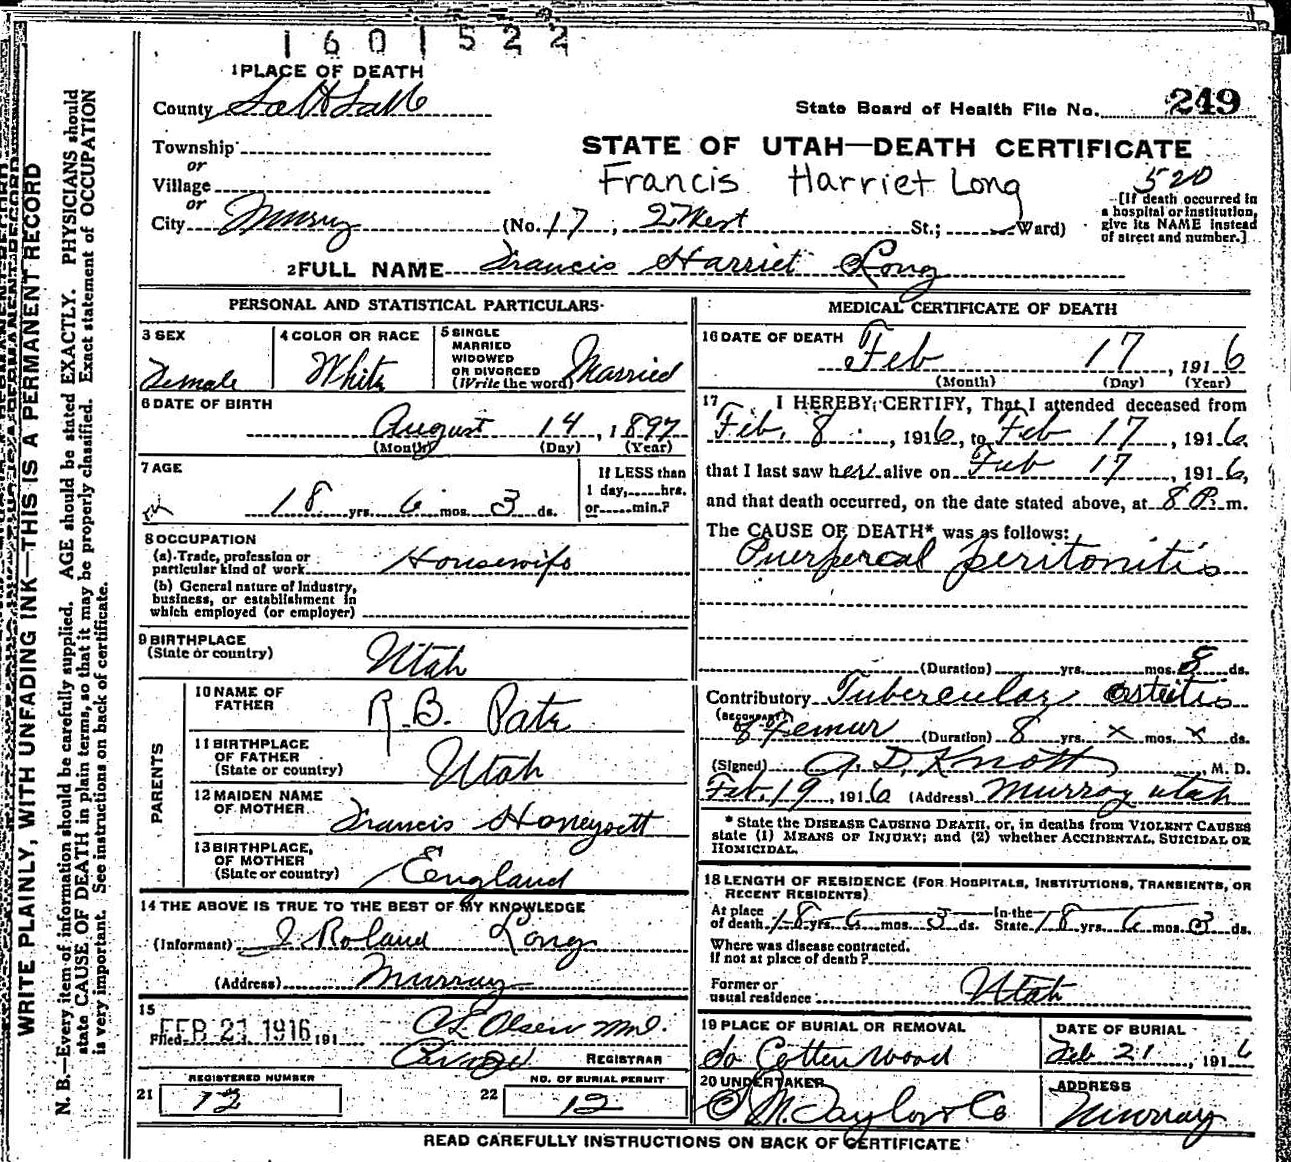 1601522
1 PLACE OF DEATH
County Salt Lake
State Board of Health File No. 249
Township
or
Village
or
STATE OF UTAH—DEATH CERTIFICATE
Francis Harriet Long
520
[If death occurred in
a hospital or institution,
give its NAME instead
of street and number.]
City Murray (No. 17, 2 West St.; Ward)
2 FULL NAME Francis Harriet Long
PERSONAL AND STATISTICAL PARTICULARS
3 SEX
Female
4 COLOR OR RACE
White
5 SINGLE
MARRIED
WIDOWED
OR DIVORCED
(Write the word) Married
6 DATE OF BIRTH
August 14, 1897
(Month) (Day) (Year)
7 AGE
18 yrs. 6 mos. 3 ds.
If LESS than
1 day, hrs.
or min.?
8 OCCUPATION
(a) Trade, profession or
particular kind of work Housewife
(b) General nature of Industry,
business, or establishment in
which employed (or employer)
9 BIRTHPLACE
(State or country) Utah
PARENTS
10 NAME OF
FATHER R.B. Pate
11 BIRTHPLACE
OF FATHER
(State or country) Utah
12 MAIDEN NAME
OF MOTHER Francis Honeysett
13 BIRTHPLACE,
OF MOTHER
(State or country) England
14 THE ABOVE IS TRUE TO THE BEST OF MY KNOWLEDGE
(Informant) J Roland Long
(Address) Murray
15
Filed FEB 21 1916 191 C E Olsen MD.
REGISTRAR
REGISTERED NUMBER
21 12
NO. OF BURIAL PERMIT
22 12
MEDICAL CERTIFICATE OF DEATH
16 DATE OF DEATH
Feb 17, 1916
(Month) (Day) (Year)
17 I HEREBY CERTIFY, That I attended deceased from
Feb. 8, 1916, to Feb 17, 1916,
that I last saw her alive on Feb 17, 1916,
and that death occurred, on the date stated above, at 8 P. m.
The CAUSE OF DEATH* was as follows:
Puerperal peritonitis
(Duration) yrs. mos. 8 ds.
Contributory Tubercular osteitis
(SECONDARY)
of Femur (Duration) 8 yrs. x mos. x ds.
(Signed) A. D. Knott M. D.
Feb. 19, 1916 (Address) Murray Utah
* State the DISEASE CAUSING DEATH, or, in deaths from VIOLENT CAUSES
state (1) MEANS OF INJURY; and (2) whether ACCIDENTAL, SUICIDAL OR
HOMICIDAL.
18 LENGTH OF RESIDENCE (FOR HOSPITALS, INSTITUTIONS, TRANSIENTS, OR
RECENT RESIDENTS)
At place
of death 18 yrs. 6 mos. 3 ds. In the
State 18 yrs. 6 mos. 3 ds.
Where was disease contracted,
if not at place of death?
Former or
usual residence Utah
19 PLACE OF BURIAL OR REMOVAL
So Cottenwood
DATE OF BURIAL
Feb 21, 1916
20 UNDERTAKER
M. Taylor & Co
ADDRESS
Murray
READ CAREFULLY INSTRUCTIONS ON BACK OF CERTIFICATE
WRITE PLAINLY, WITH UNFADING INK—THIS IS A PERMANENT RECORD
N. B.—Every item of information should be carefully supplied. AGE should be stated EXACTLY. PHYSICIANS should
state CAUSE OF DEATH in plain terms, so that it may be properly classified. Exact statement of OCCUPATION
is very important. See instructions on back of certificate.